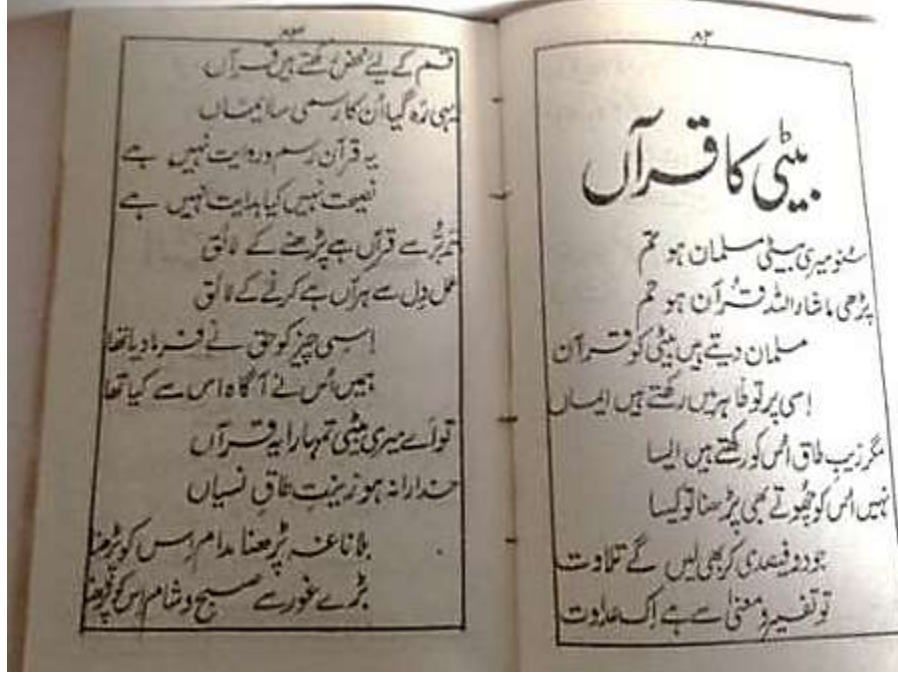 ۸۲
بیٹی کا قرآں
سنو میری بیٹی مسلمان ہو تم
پڑھی ماشاراللہ قرآن ہو تم
مسلمان دیتے ہیں بیٹی کو قرآن
اِسی پر تو ظاہر میں رکھتے ہیں ایماں
مگر زیبِ طاق اُس کو رکھتے ہیں ایسا
نہیں اُس کو چھُوتے بھی پڑھنا تو کیسا
جو دو فیصدی کر بھی لیں گے تلاوت
تو تفسیر و معنیٰ سے ہے اِک عداوت
۸۳
قسم کے لیٔے محض رکھتے ہیں قرآں
یہی رہ گیا اُن کا رسمی سا ایماں
یہ قرآن رسم و روایت نہیں ہے
نصیحت نہیں کیا ہدایت نہیں ہے
تدبُّر سے قرآں ہے پڑھنے کے لائق
عمل دِل سے ہر آں ہے کرنے کے لائق
اِسی چیز کو حق نے فرما دیا تھا
ہمیں اُس نے آگاہ اس سے کیا تھا
تو اَے میری بیٹی تمہارا یہ قرآں
خدارا نہ ہو زینتِ طاقِ نسیاں
بلا ناغہ پڑھنا مدام اِس کو پڑھنا
بڑے غور سے صبح و شام اِس کو پڑھنا